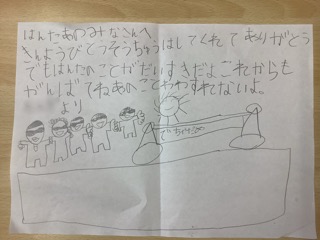 はんたあのみなさんへ
きんようびとうそうちゅうはしてくれてありがとう
でもはんたのことがだいすきだよこれからも
がんばてねあのことわわすれないよ。
より